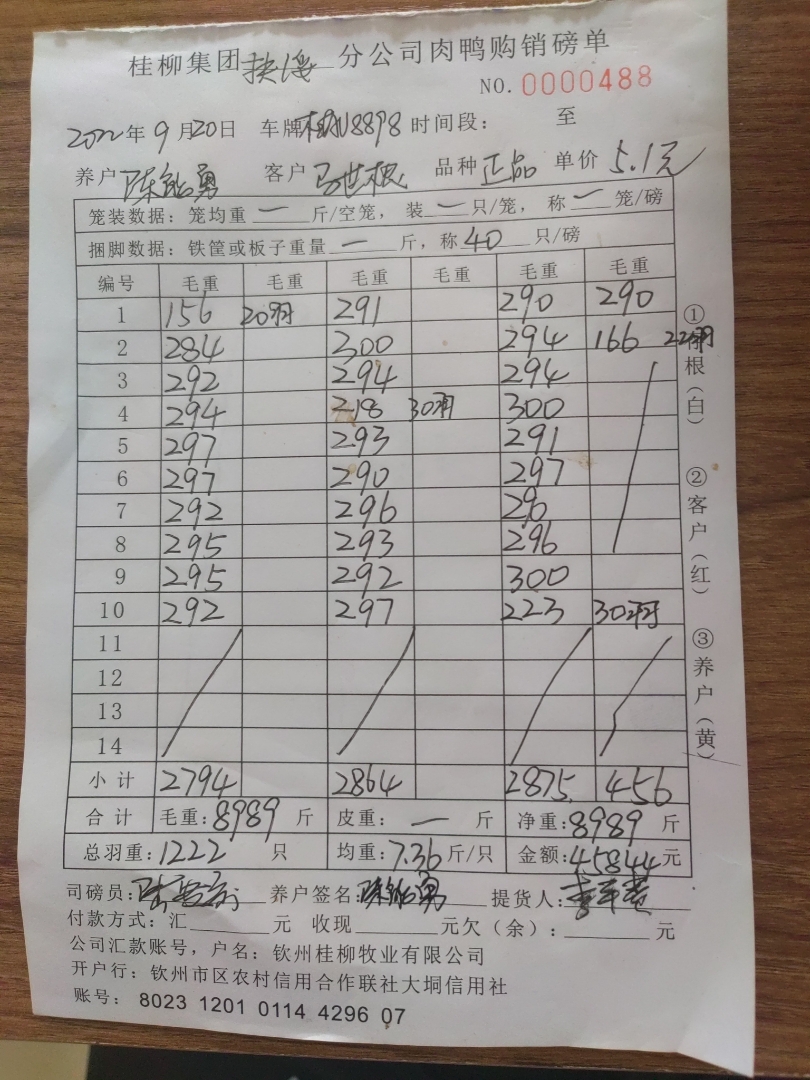 桂柳集团扶绥分公司肉鸭购销磅单
NO. 0000488
2022年9月20日 车牌 8898 时间段: 至
养户 陈 勇 客户 马世根 品种 正品 单价 5.1元
笼装数据: 笼均重 一 斤/空笼, 装 一 只/笼, 称 一 笼/磅
捆脚数据: 铁筐或板子重量 一 斤, 称 40 只/磅
编号 毛重 毛重 毛重 毛重 毛重 毛重
1 156 20羽 291 290 290
2 284 300 294 166 22羽
3 292 294 294
4 294 218 30羽 300
5 297 293 291
6 297 290 297
7 292 296 290
8 295 293 296
9 295 292 300
10 292 297 223 30羽
11
12
13
14
小计 2794 2864 2875 456
合计 毛重: 8989 斤 皮重: 一 斤 净重: 8989 斤
总羽重: 1222 只 均重: 7.36 斤/只 金额: 45844 元
司磅员: 养户签名: 陈 勇 提货人:
付款方式: 汇 元 收现 元欠(余): 元
公司汇款账号, 户名: 钦州桂柳牧业有限公司
开户行: 钦州市区农村信用合作联社大垌信用社
账号: 8023 1201 0114 4296 07
①存根(白)
②客户(红)
③养户(黄)